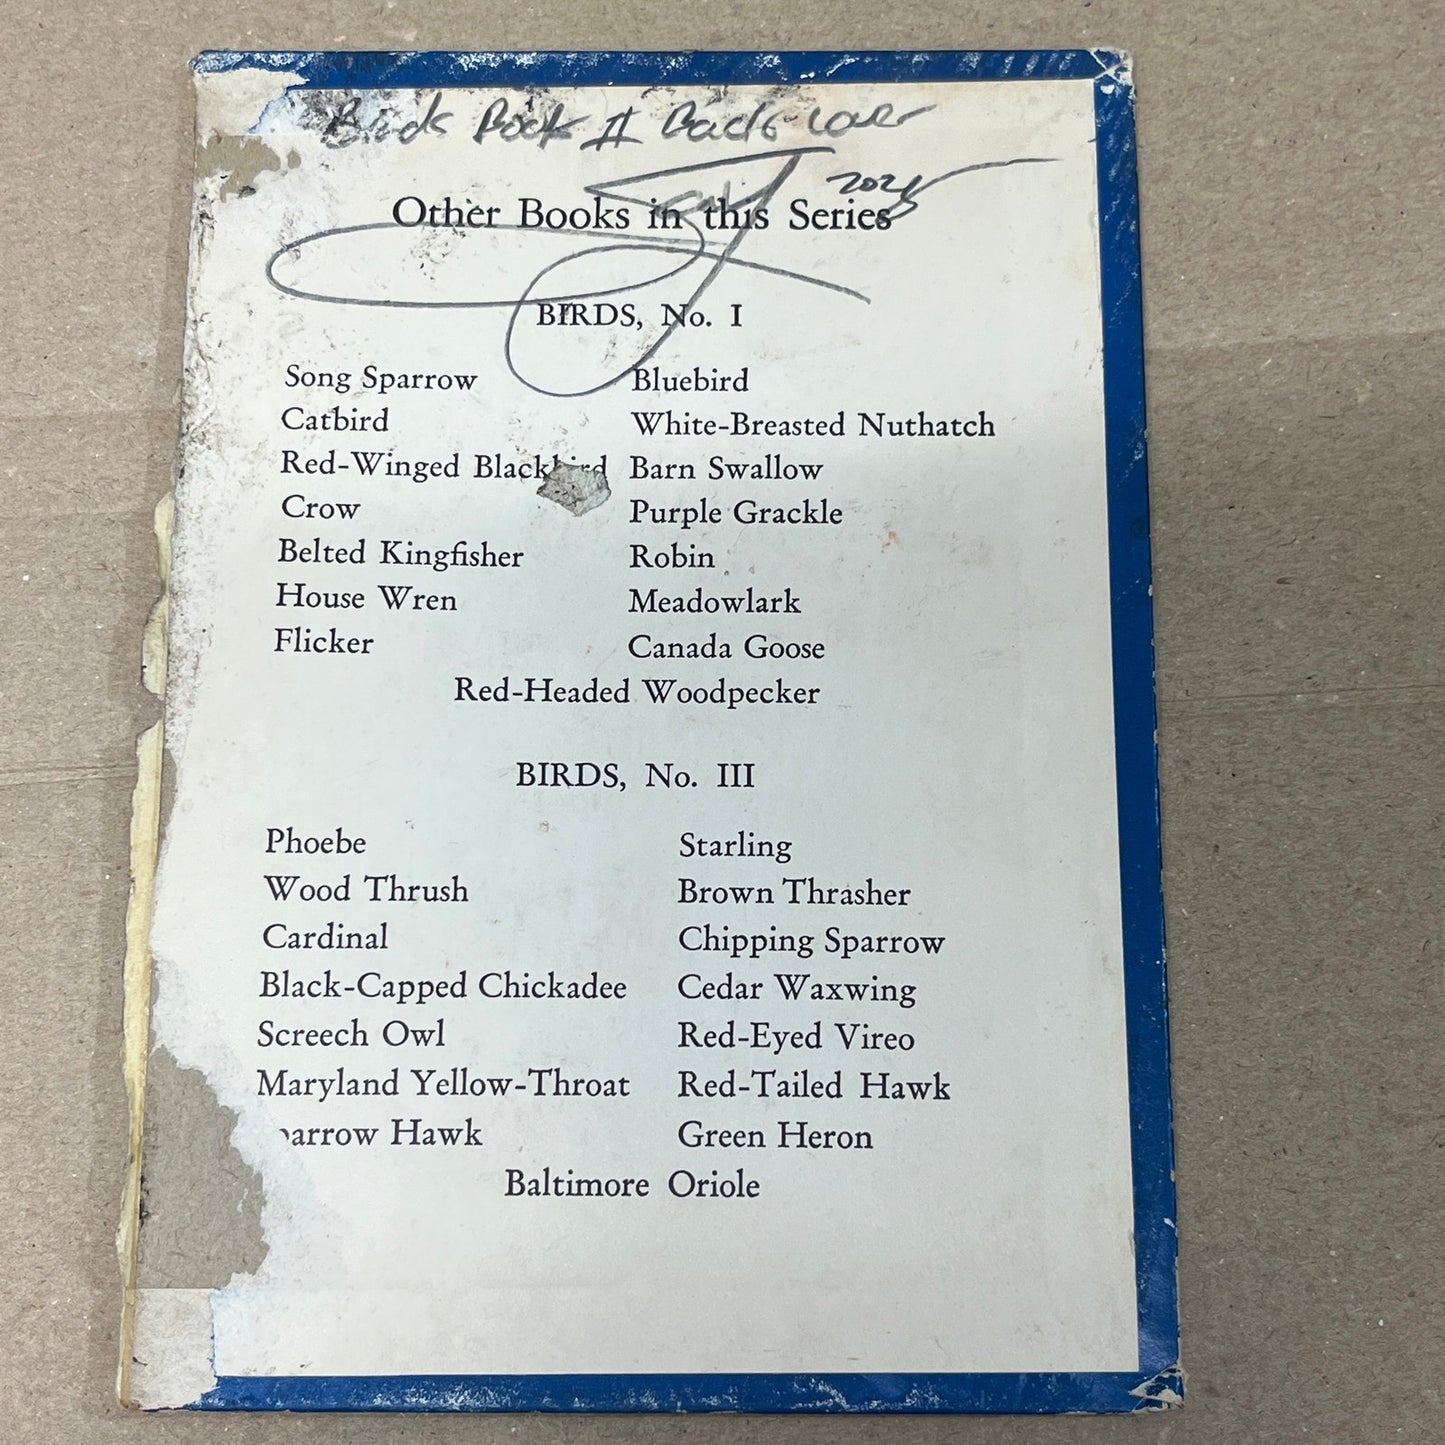 Birds Book II Back cover
2025
Other Books in this Series
BIRDS, No. I
Song Sparrow
Catbird
Red-Winged Blackbird
Crow
Belted Kingfisher
House Wren
Flicker
Bluebird
White-Breasted Nuthatch
Barn Swallow
Purple Grackle
Robin
Meadowlark
Canada Goose
Red-Headed Woodpecker
BIRDS, No. III
Phoebe
Wood Thrush
Cardinal
Black-Capped Chickadee
Screech Owl
Maryland Yellow-Throat
parrow Hawk
Starling
Brown Thrasher
Chipping Sparrow
Cedar Waxwing
Red-Eyed Vireo
Red-Tailed Hawk
Green Heron
Baltimore Oriole